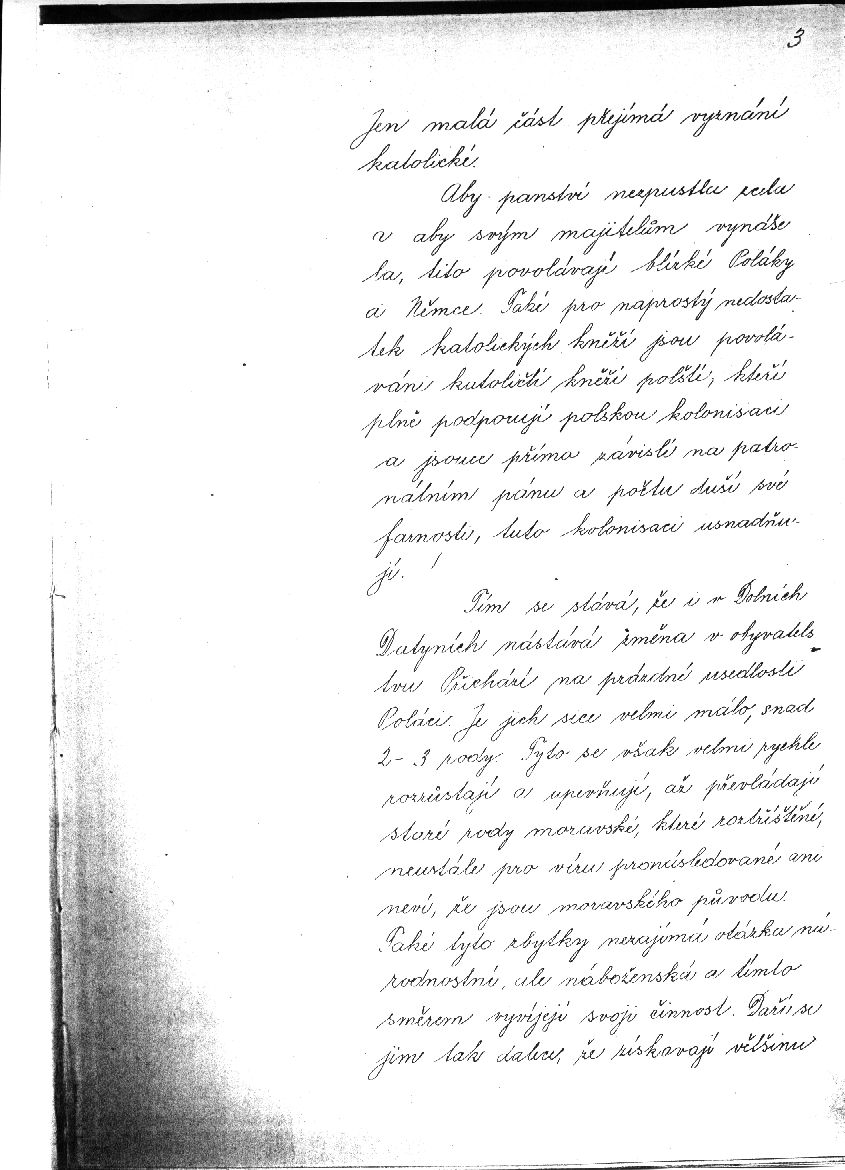 3
Jen malá část přejímá vyznání
katolické.
Aby panství nezpustla zcela
a aby svým majitelům vynáše
la, tito povolávají blízké Poláky
a Němce. Také pro naprostý nedosta-
tek katolických kněží jsou povolá-
váni katoličtí kněží polští, kteří
plně podporují polskou kolonisaci
a jsouce přímo závislí na patro-
nátním pánu a počtu duší své
farnosti, tuto kolonisaci usnadňu-
jí.
Tím se stává, že i v Dolních
Datyních nástává změna v obyvatels
tvu Přichází na prázdné usedlosti
Poláci. Je jich sice velmi málo, snad
2-3 rody. Tyto se však velmi rychle
rozrůstají a upevňují, až převládají
staré rody moravské, které roztříštěné,
neustále pro víru pronásledované ani
neví, že jsou moravského původu.
Také tyto zbytky nezajímá otázka ná-
rodnostní, ale náboženská a tímto
směrem vyvíjejí svoji činnost. Daří se
jim tak dalece, že získavají většinu